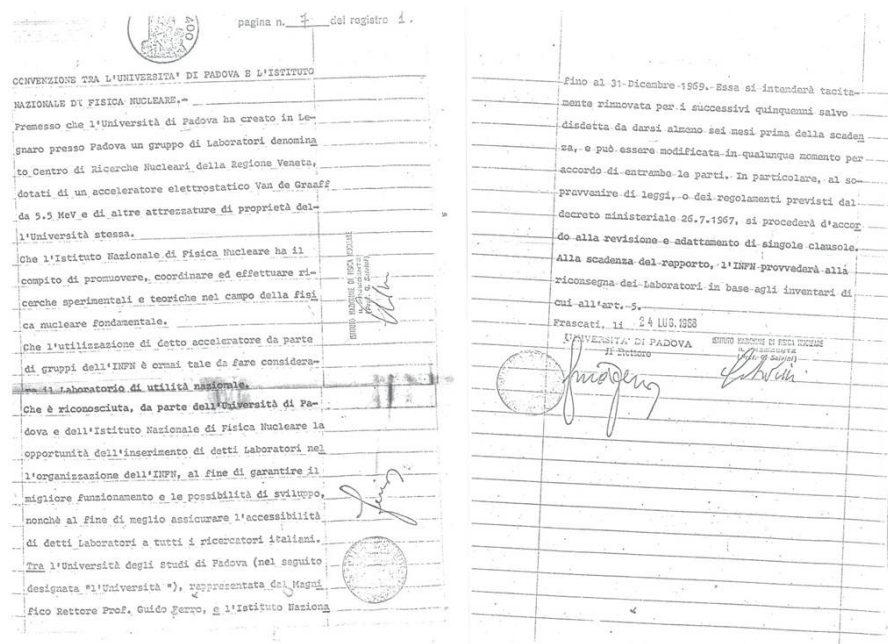 pagina n. 7 del registro 1.
400
CONVENZIONE TRA L'UNIVERSITA' DI PADOVA E L'ISTITUTO
NAZIONALE DI FISICA NUCLEARE.-
Premesso che l'Università di Padova ha creato in Le-
gnaro presso Padova un gruppo di Laboratori denomina
to Centro di Ricerche Nucleari della Regione Veneta,
dotati di un acceleratore elettrostatico Van de Graaff
da 5.5 MeV e di altre attrezzature di proprietà del-
l'Università stessa.
Che l'Istituto Nazionale di Fisica Nucleare ha il
compito di promuovere, coordinare ed effettuare ri-
cerche sperimentali e teoriche nel campo della fisi
ca nucleare fondamentale.
Che l'utilizzazione di detto acceleratore da parte
di gruppi dell'INFN è ormai tale da fare considera-
re il Laboratorio di utilità nazionale.
Che è riconosciuta, da parte dell'Università di Pa-
dova e dell'Istituto Nazionale di Fisica Nucleare la
opportunità dell'inserimento di detti Laboratori nel
l'organizzazione dell'INFN, al fine di garantire il
migliore funzionamento e le possibilità di sviluppo,
nonchè al fine di meglio assicurare l'accessibilità
di detti Laboratori a tutti i ricercatori italiani.
Tra l'Università degli Studi di Padova (nel seguito
designata "l'Università "), rappresentata dal Magni
fico Rettore Prof. Guido Ferro, e l'Istituto Naziona
ISTITUTO NAZIONALE DI FISICA NUCLEARE
(Prof. G. Salvini)
fino al 31 Dicembre 1969. Essa si intenderà tacita-
mente rinnovata per i successivi quinquenni salvo
disdetta da darsi almeno sei mesi prima della scaden
za, e può essere modificata in qualunque momento per
accordo di entrambe le parti. In particolare, al so-
pravvenire di leggi, o dei regolamenti previsti dal
decreto ministeriale 26.7.1967, si procederà d'accor
do alla revisione e adattamento di singole clausole.
Alla scadenza del rapporto, l'INFN provvederà alla
riconsegna dei Laboratori in base agli inventari di
cui all'art. 5.
Frascati, li 24 LUG. 1968
UNIVERSITA' DI PADOVA
Il Rettore
ISTITUTO NAZIONALE DI FISICA NUCLEARE
(Prof. G. Salvini)